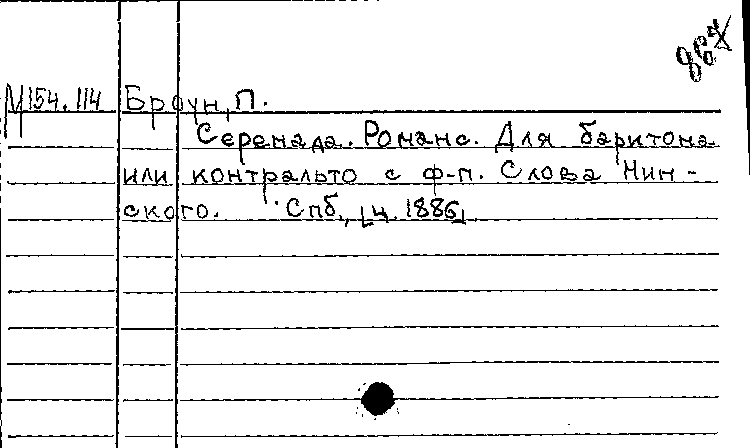 867
М154.114 Броун, П.
Серенада. Романс. Для баритона
или контральто с ф-п. Слова Нин-
ского. Спб., [ц. 1886]